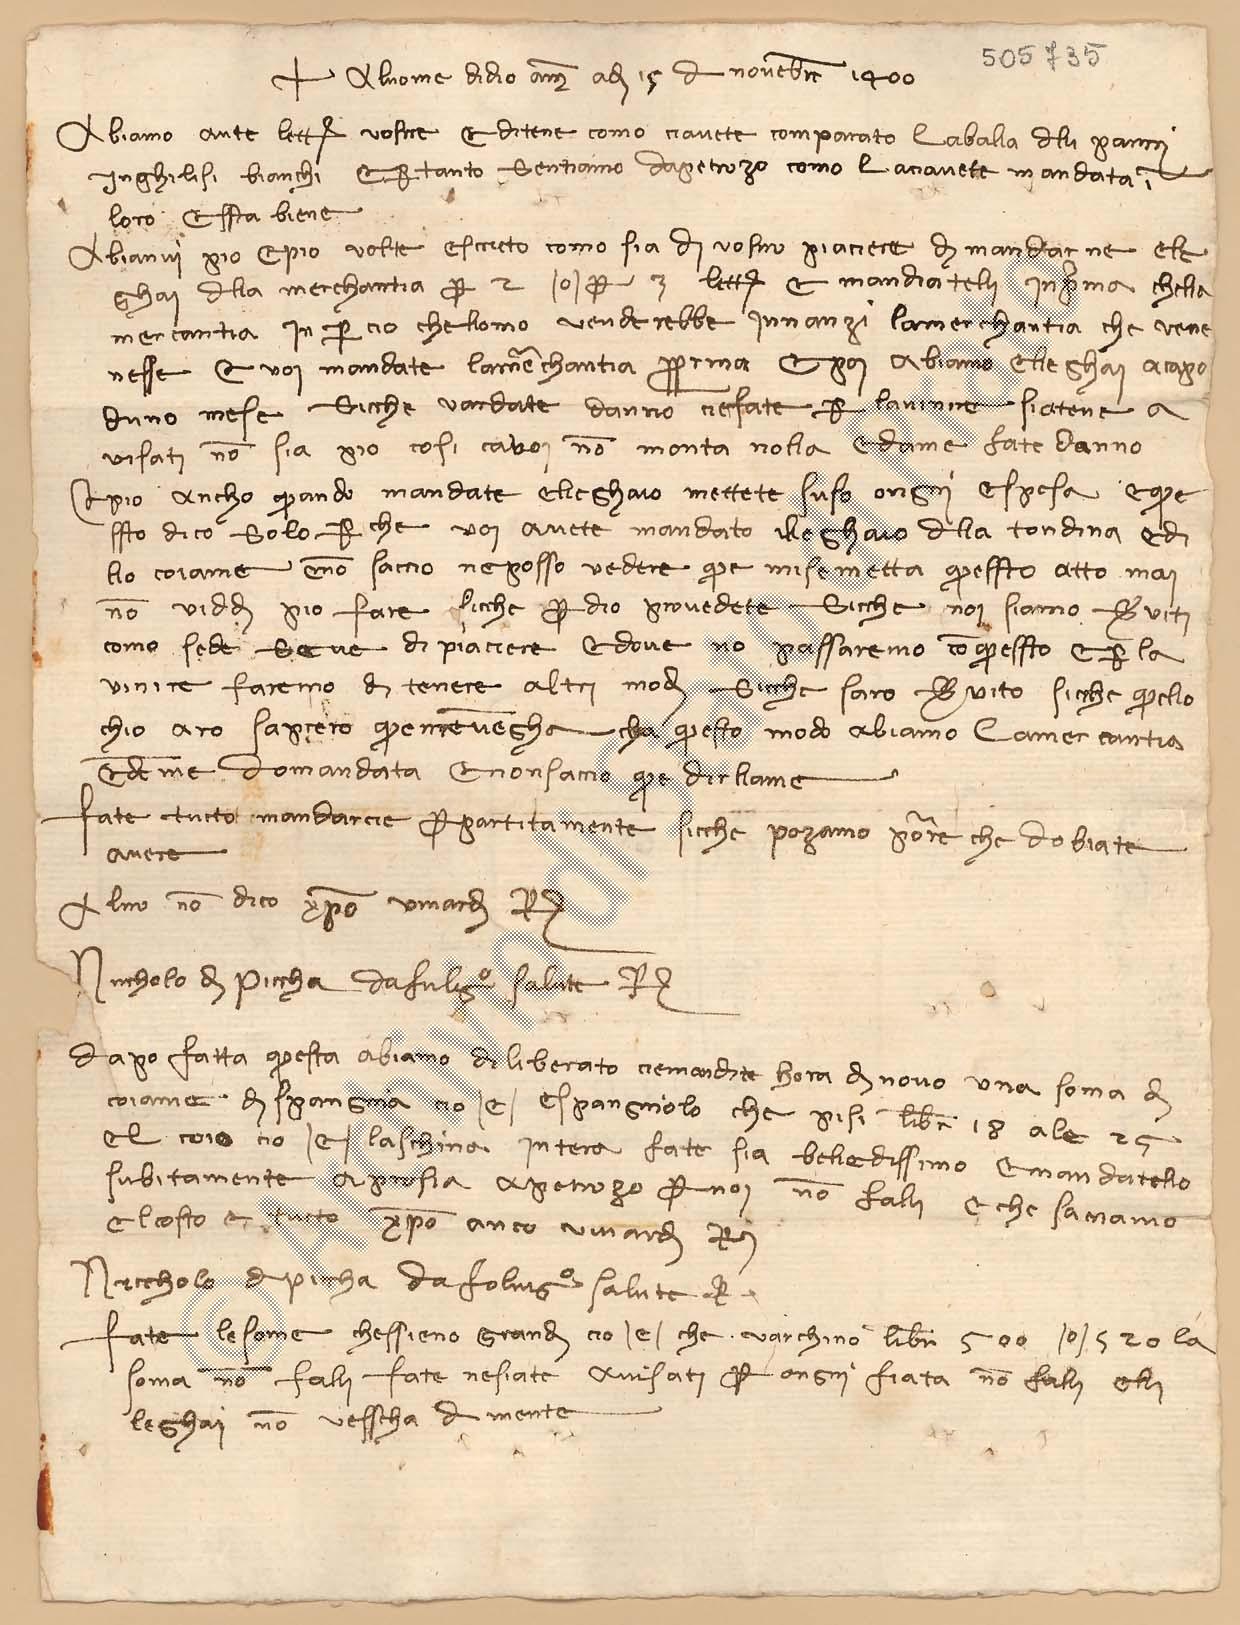 505735
+ Al nome di dio am̄ adj 15 d novēbr 1400
Abiamo aute lett vostre e ditene como ciavete comparato la balla dli panni
inghilisi bianchi e p tanto sentiamo da petruzo como laciavete mandata i
loro e ssta biene
Abianvi pio e pio volte escrito como sia di vostro piaciere di mandarne elle
ghaj dlla merchantia p 2 /o/ p 3 lett e mandiatelli in pma chella
mercantia in p cio chellomo venderebbe innanzi la merchantia che vene
nesse e voi mandate la mēchantia pprima e poi abiamo elle ghaj a capo
duno mese sicche vardate danno ciefate p lavinire siatene a
visati nō sia pio cosi cavoi nō monta nolla e dame fate danno
E pio ancho quando mandate elleghaio mettete suso ongni espesa e que
ssto dico solo p che voi avete mandato illeghaio dlla tondina e di
llo coiame e nō saccio ne posso vedere que mise metta quessto atto mai
nō viddi pio fare sicche p dio provedete sicche noi siamo sviti
como sede seve di piaciere e dove no passaremo cō quessto e p la
vinire faremo di tenere altri modi sicche saro svito sicche quello
chio aro sapcero que mēvēghe cha questo modo abiamo la mercantia
domandata e non saccio que dirllame
fate tutto mandarcie p partitamente sicche pozamo pōre che dobiate
avere
Altro nō dico xp̄o vi guardi R
Niccholo di Piccha da fuligo salute R
dapo fatta questa abiamo diliberato ciemandite hora di novo una soma di
coiame di spangnia cio /e/ espangniolo che pisi libr 18 ale 25
el coio cio /e/ la schina intera fate sia belledissimo e mandatello
subitamente a prosia a petruzo p noi nō falli e che sacciamo
el costo e tutto xp̄o anco vi guardi R
Niccholo di piccha da foligo salute R
fate le some chessieno grandi cio /e/ che varchino libr 500 /o/ 520 la
soma nō falli fate ne siate avisati p ongni fiata nō falli elli
leghaj nō vesscha d mente